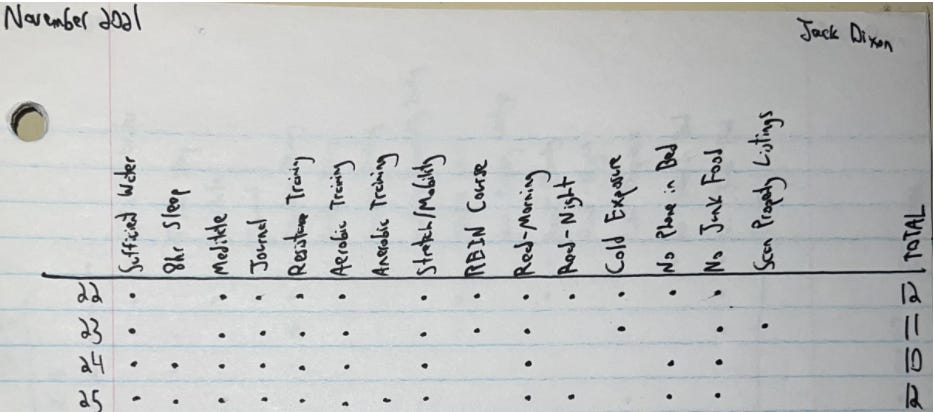 November 2021
Jack Dixon
Sufficient Water
8hr Sleep
Meditate
Journal
Resistance Training
Aerobic Training
Anerobic Training
Stretch/Mobility
Course
Read-Morning
Read-Night
Cold Exposure
No Phone in Bed
No Junk Food
Scan Property Listings
TOTAL
22 12
23 11
24 10
25 12